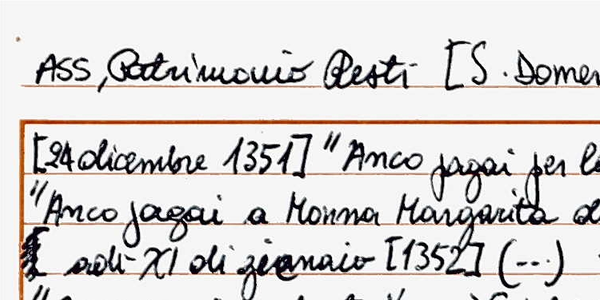 ASS, Patrimonio Resti [S. Domen
[24 dicembre 1351] "Anco pagai per l
"Anco pagai a Monna Margarita d
adi XI di gienaio [1352] (---)